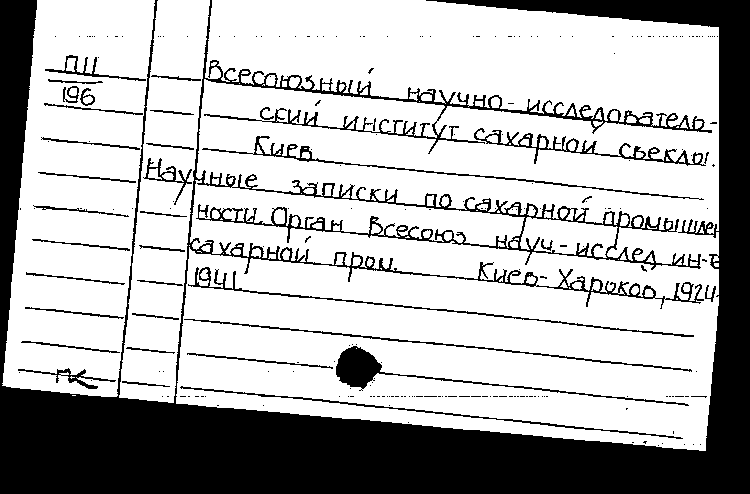 ПШ
196
Всесоюзный научно-исследователь-
ский институт сахарной свеклы.
Киев.
Научные записки по сахарной промышлен
ности. Орган Всесоюз науч.-исслед ин-т
сахарной пром. Киев-Харьков, 1924-
1941.
ПК